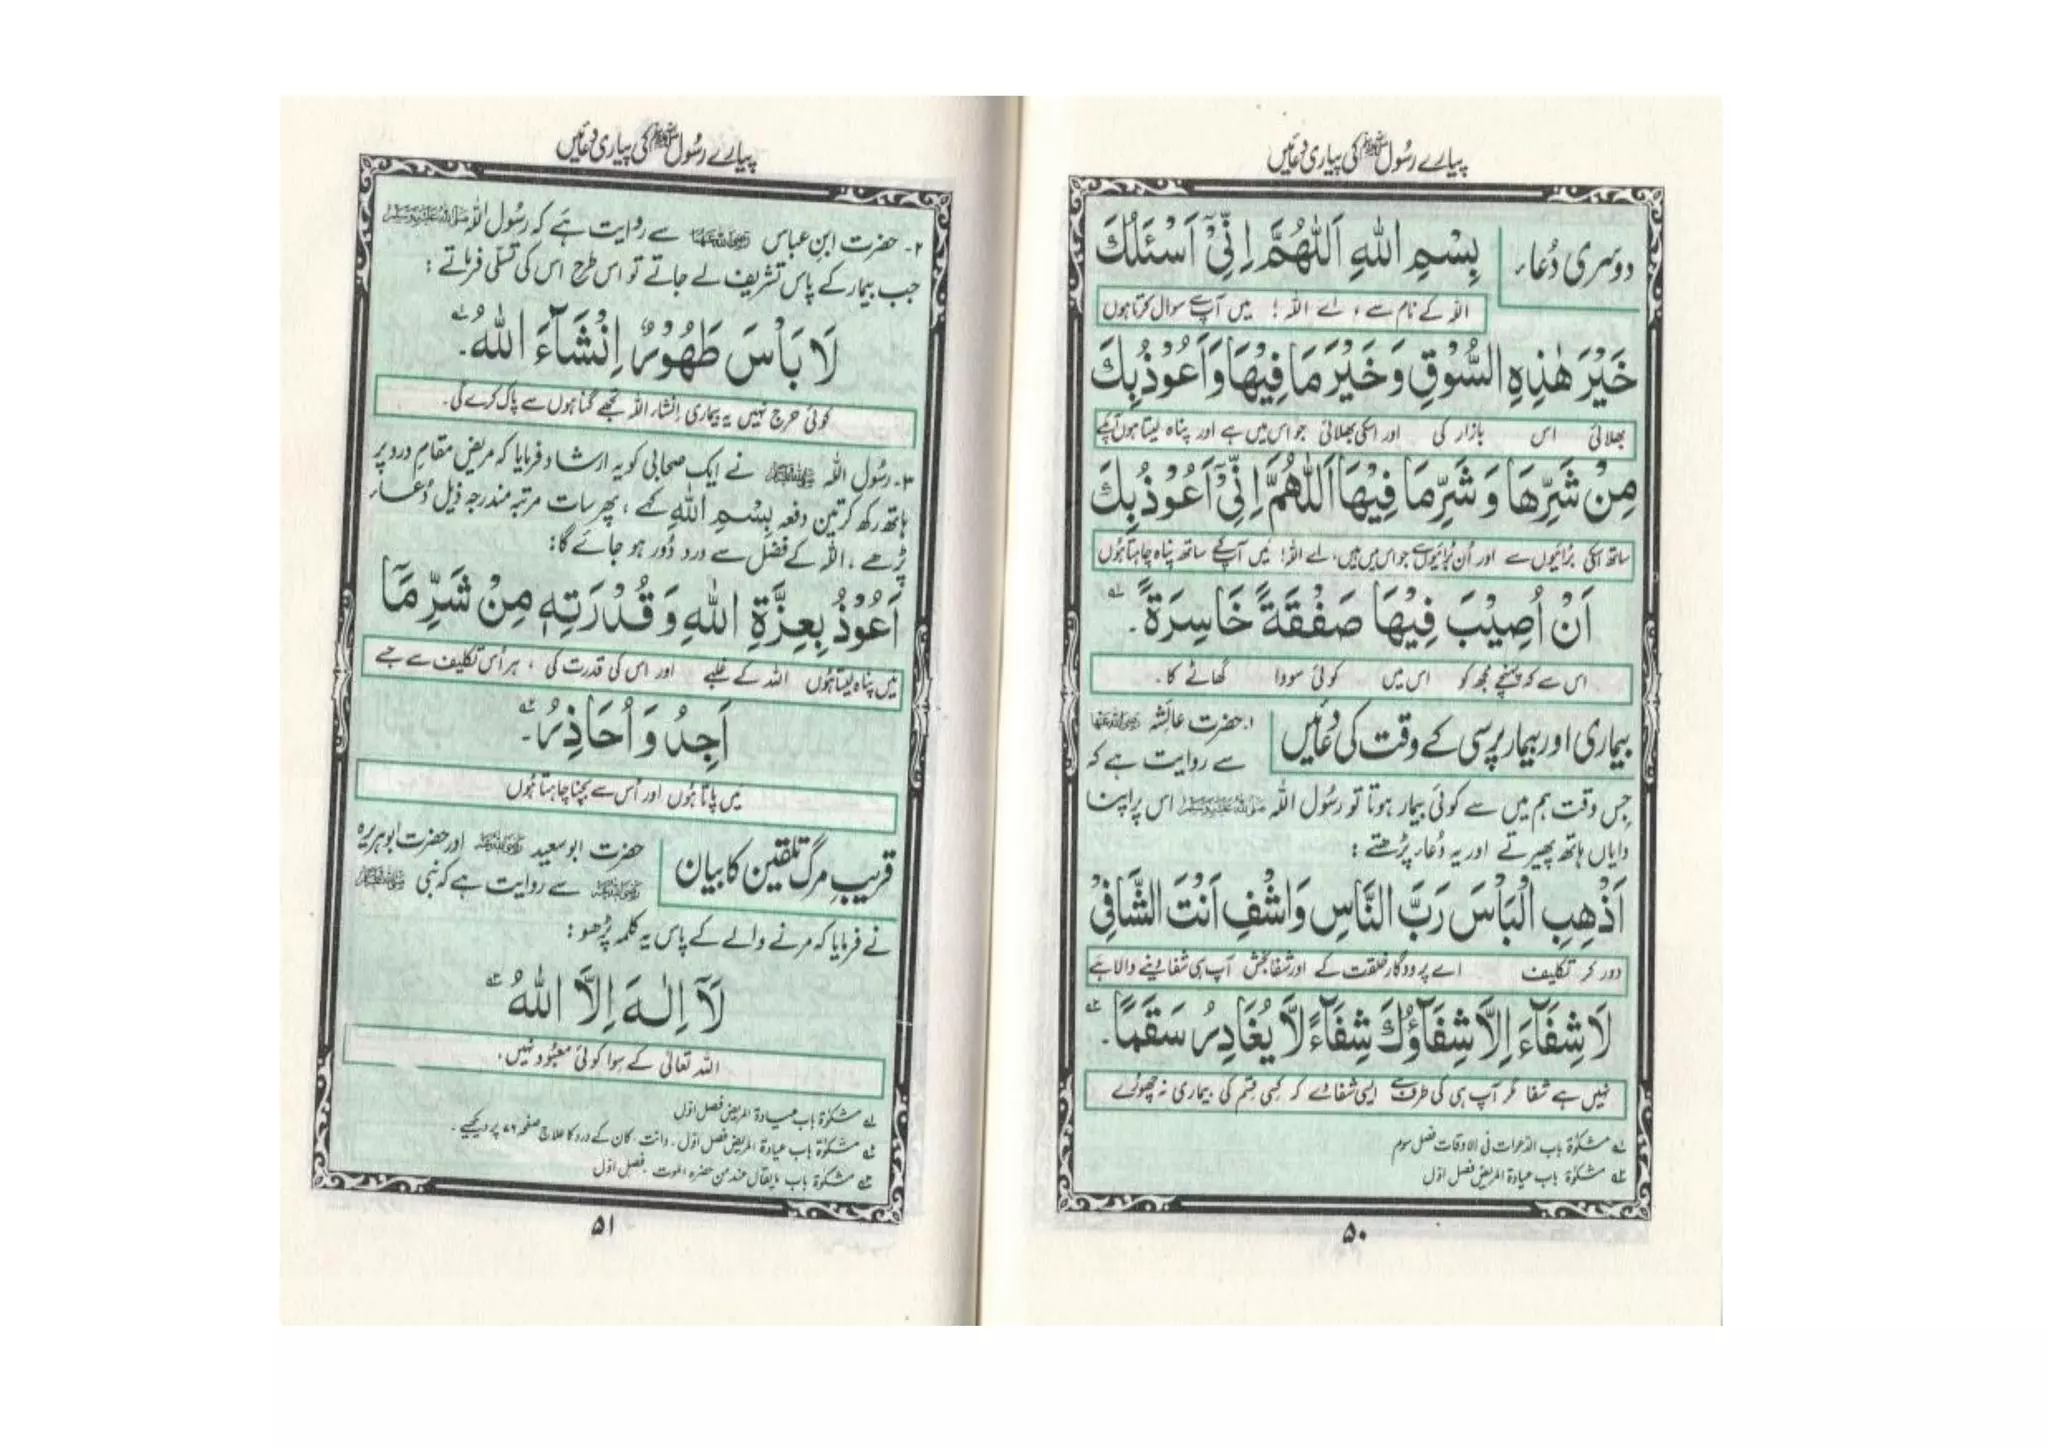 پیارے رسُول ﷺ کی پیاری دُعائیں
دوسری دُعاء
بِسْمِ اللّٰهِ اَللّٰهُمَّ اِنِّیْٓ اَسْئَلُكَ
اللہ کے نام سے ، اے اللہ ! میں آپ سے سوال کرتا ہوں
خَیْرَ هٰذِهِ السُّوْقِ وَخَیْرَ مَا فِیْهَا وَاَعُوْذُ بِكَ
بھلائی اس بازار کی اور اسکی بھلائی جو اس میں ہے اور پناہ لیتا ہوں آپکے
مِنْ شَرِّهَا وَ شَرِّ مَا فِیْهَا اَللّٰهُمَّ اِنِّیْٓ اَعُوْذُ بِكَ
ساتھ اسکی بُرائیوں سے اور اُن بُرائیوں سے جو اس میں ہیں، اے اللہ! میں آپ کے ساتھ پناہ چاہتا ہُوں
اَنْ اُصِیْبَ فِیْهَا صَفْقَةً خَاسِرَةً ۔ لہ
اس سے کہ پہنچے مجھ کو اس میں کوئی سودا گھاٹے کا ۔
بیماری اور بیمار پرسی کے وقت کی دُعائیں
۱۔ حضرت عائشہ رضی اللہ عنہا
سے روایت ہے کہ
جس وقت ہم میں سے کوئی بیمار ہوتا تو رسُول اللہ صلی اللہ علیہ وسلم اس پر اپنا
دایاں ہاتھ پھیرتے اور یہ دُعاء پڑھتے :
اَذْهِبِ الْبَاْسَ رَبَّ النَّاسِ وَاشْفِ اَنْتَ الشَّافِیْ
دور کر تکلیف اے پروردگار خلقت کے اور شفا بخش آپ ہی شفا دینے والا ہے
لَا شِفَآءَ اِلَّا شِفَآؤُكَ شِفَآءً لَّا یُغَادِرُ سَقَمًا ۔ ٢ہ
نہیں ہے شفا مگر آپ ہی کی طرف سے ایسی شفا دے کر کسی قسم کی بیماری نہ چھوڑے
لہ مشکوٰة باب الدعوات فی الاوقات فصل سوم
٢ہ مشکوٰة باب عیادة المریض فصل اوّل
۵۰
پیارے رسُول ﷺ کی پیاری دُعائیں
۲۔ حضرت ابنِ عباس رضی اللہ عنہما سے روایت ہے کہ رسُول اللہ صلی اللہ علیہ وسلم
جب بیمار کے پاس تشریف لے جاتے تو اس طرح اس کی تسلّی فرماتے :
لَا بَاْسَ طَهُوْرٌ اِنْشَآءَ اللّٰهُ ۔ لہ
کوئی حرج نہیں یہ بیماری اِنشاء اللہ تجھے گناہوں سے پاک کرے گی ۔
۳۔ رسُول اللہ ﷺ نے ایک صحابی کو یہ ارشاد فرمایا کہ مریض مقامِ درد پر
ہاتھ رکھ کر تین دفعہ بِسْمِ اللّٰهِ کہے ، پھر سات مرتبہ مندرجہ ذیل دُعاء
پڑھے ، اللہ کے فضل سے درد دُور ہو جائے گا :
اَعُوْذُ بِعِزَّةِ اللّٰهِ وَ قُدْرَتِهٖ مِنْ شَرِّ مَآ
میں پناہ لیتا ہُوں اللہ کے غلبے اور اس کی قدرت کی ، ہر اُس تکلیف سے جسے
اَجِدُ وَ اُحَاذِرُ ۔ ٢ہ
میں پاتا ہُوں اور اُس سے بچنا چاہتا ہُوں
قریبِ مرگ تلقین کا بیان
حضرت ابو سعید رضی اللہ عنہ اور حضرت ابو ہریرہ
رضی اللہ عنہ سے روایت ہے کہ نبی ﷺ
نے فرمایا کہ مرنے والے کے پاس یہ کلمہ پڑھو :
لَآ اِلٰهَ اِلَّا اللّٰهُ ٣ہ
اللہ تعالیٰ کے سوا کوئی معبُود نہیں ۔
لہ مشکوٰة باب عیادة المریض فصل اوّل
٢ہ مشکوٰة باب عیادة المریض فصل اوّل ۔ دانت ، کان کے درد کا علاج صفحہ ۷۶ پر دیکھیے ۔
٣ہ مشکوٰة باب مایقال عند من حضرہ الموت ۔ فصل اوّل
۵۱